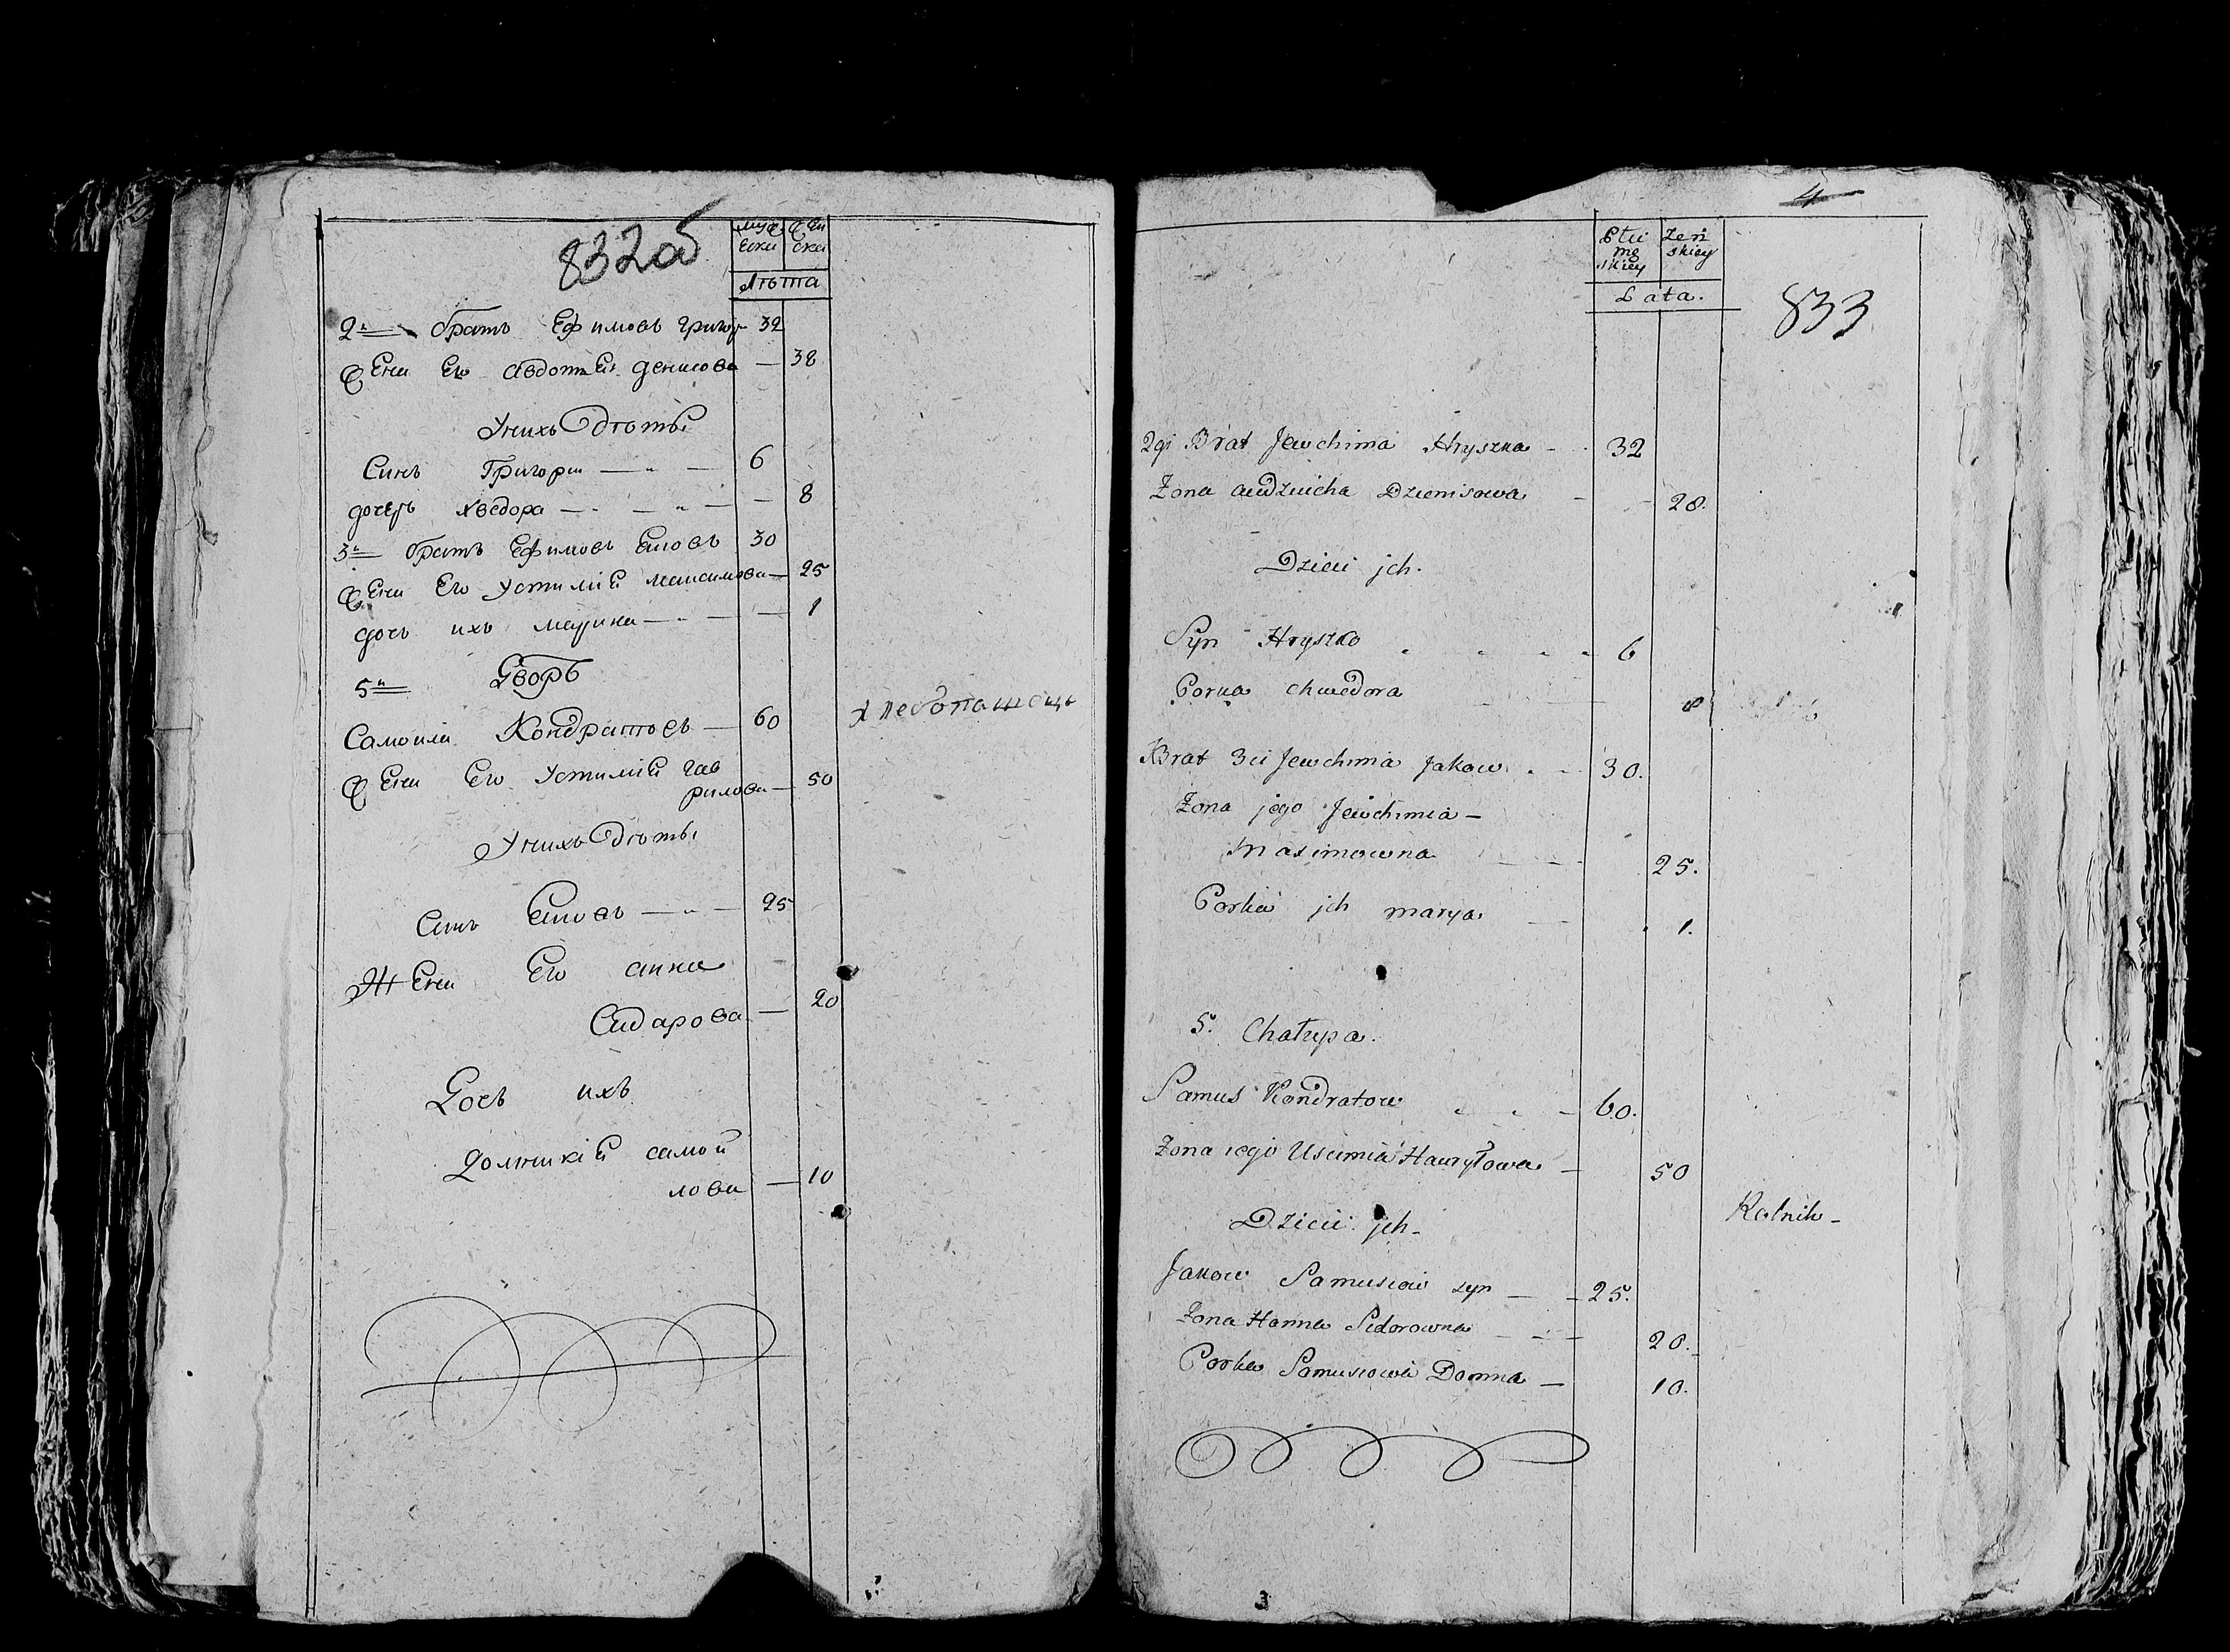 832об
муже жен
ска ска
Лѣта
2й братъ Ефимовъ григор 32
жена Его Авдотея денисова — 38
Унихъ дѣти
Синъ Григори — " — 6
дочеръ хведора — " — 8
3й братъ Ефимовъ Ековъ 30
жена Его Устимия максимова — 25
доч ихъ марина — " — 1
5й Дворъ
Самоила Кондратовъ — 60 хлебопашецъ
жена Его Устимия гав
рилова — 50
Унихъ дѣти
Синъ Ековъ — " — 25
Жена Его анна
Сидарова — 20
Дочъ ихъ
самой
лова — 10
4
Płci żeń
mę skiey
skiey
Lata.
833
2gi Brat Jewchima Hryszka - 32
Żona Dzienisowa - 28.
Dzieci jch.
Syn Hryszko 6
Corka Chwedora 8
Brat 3ci Jewchima Jakow - 30.
Żona jego Jewchimia -
Masimowna 25.
Corka jch marya 1.
5. Chałupa.
Samus Kondratow - 60.
Żona iego Uscimia Hawryłowa - 50
Dzieci jch - Rolnik -
Jakow Samusiow syn - 25.
Żona Hanna Sidorowna - 20.
Corka Samusiowa Domna - 10.
3